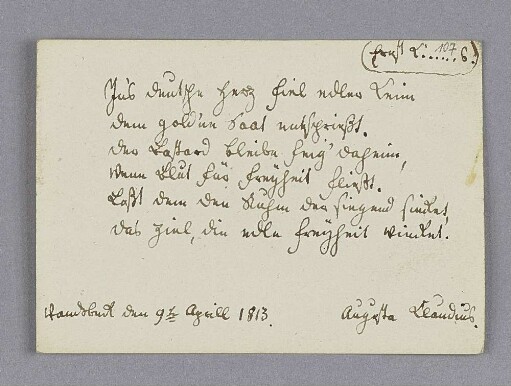 (Ernst L.......s.)
107
Ins deutsche Herz fiel edler Keim
dem gold'ne Saat entsprießt.
der Bastard bleibe feig' daheim,
wenn Blut für Freyheit fließt.
Laßt dem den Ruhm der siegend sinket,
das Ziel, die edle Freyheit winket.
Wandsbeck den 9te Aprill 1813.
Augusta Claudius.